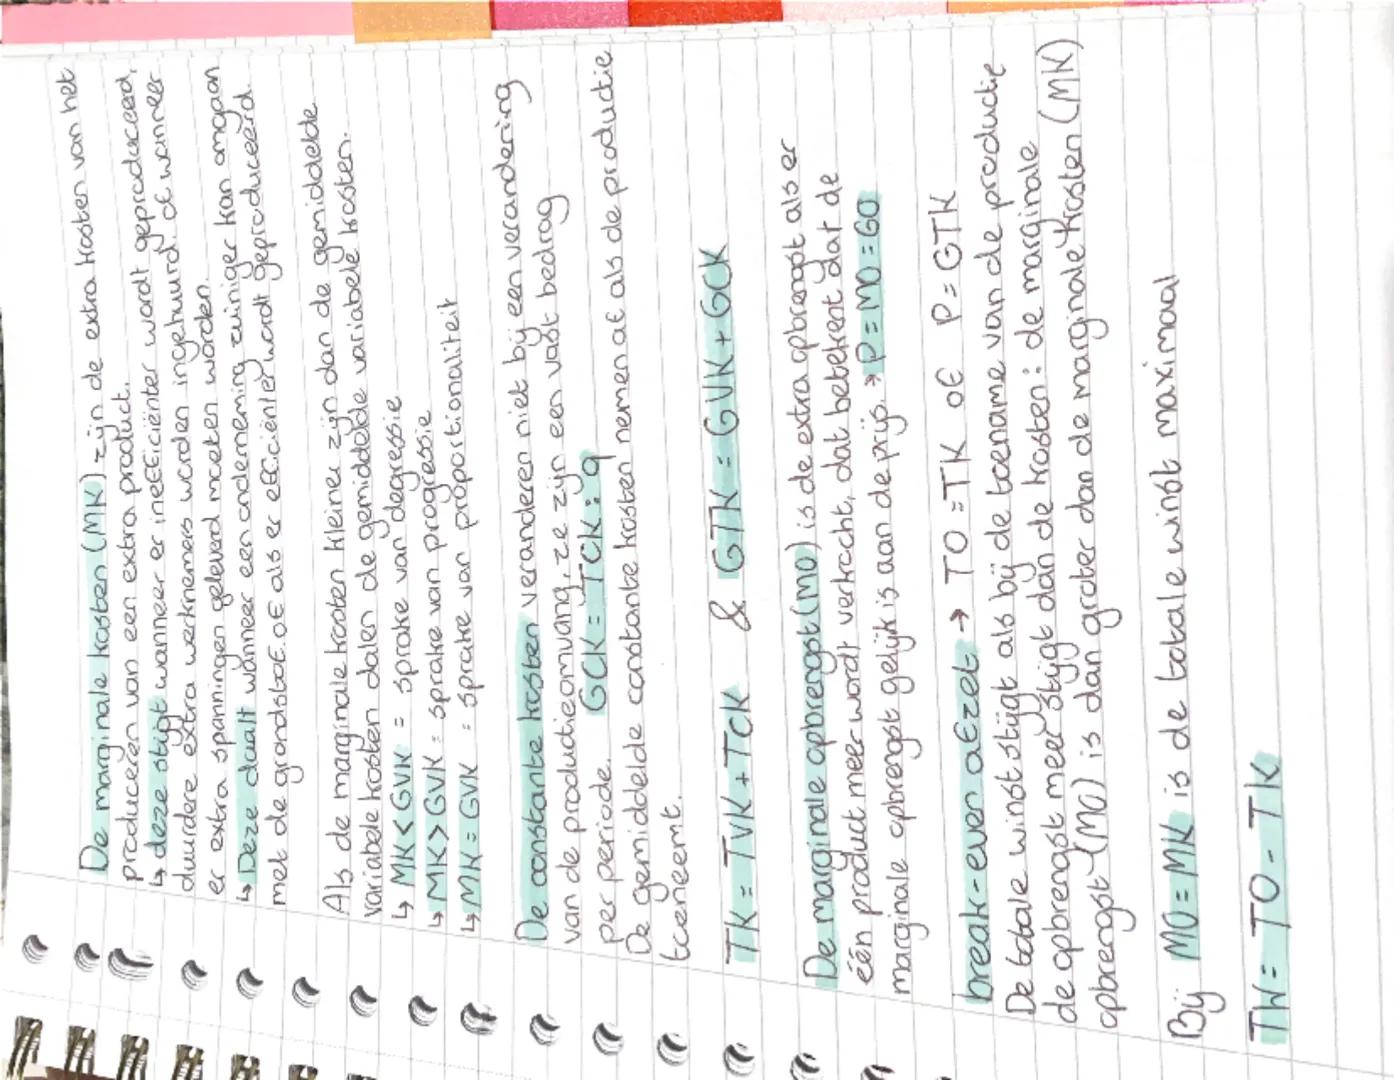 De marginale kosten (MK) zijn de extra kosten van het
produceren van een extra product.
↳ deze stijgt wanneer er inefficiënter wordt geproduceerd,
duurdere extra werknemers worden ingehuurd of wanneer
er extra spanningen geleverd moeten worden.
↳ Deze daalt wanneer een onderneming zuiniger kan omgaan
met de grondstof of als er efficiënter wordt geproduceerd.
Als de marginale kosten kleiner zijn dan de gemiddelde
variabele kosten dalen de gemiddelde variabele kosten.
↳ MK < GVK = sprake van degressie
↳ MK > GVK = sprake van progressie
↳ MK = GVK = sprake van proportionaliteit
De constante kosten veranderen niet bij een verandering
van de productieomvang, ze zijn een vast bedrag
per periode. GCK = TCK : q
De gemiddelde constante kosten nemen af als de productie
toeneemt.
TK = TVK + TCK & GTK = GVK + GCK
De marginale opbrengst (MO) is de extra opbrengst als er
één product meer wordt verkocht, dat betekent dat de
marginale opbrengst gelijk is aan de prijs. → P = MO = GO
break-even afzet → TO = TK of P = GTK
De totale winst stijgt als bij de toename van de productie
de opbrengst meer stijgt dan de kosten: de marginale
opbrengst (MO) is dan groter dan de marginale kosten (MK)
Bij MO = MK is de totale winst maximaal
TW = TO - TK